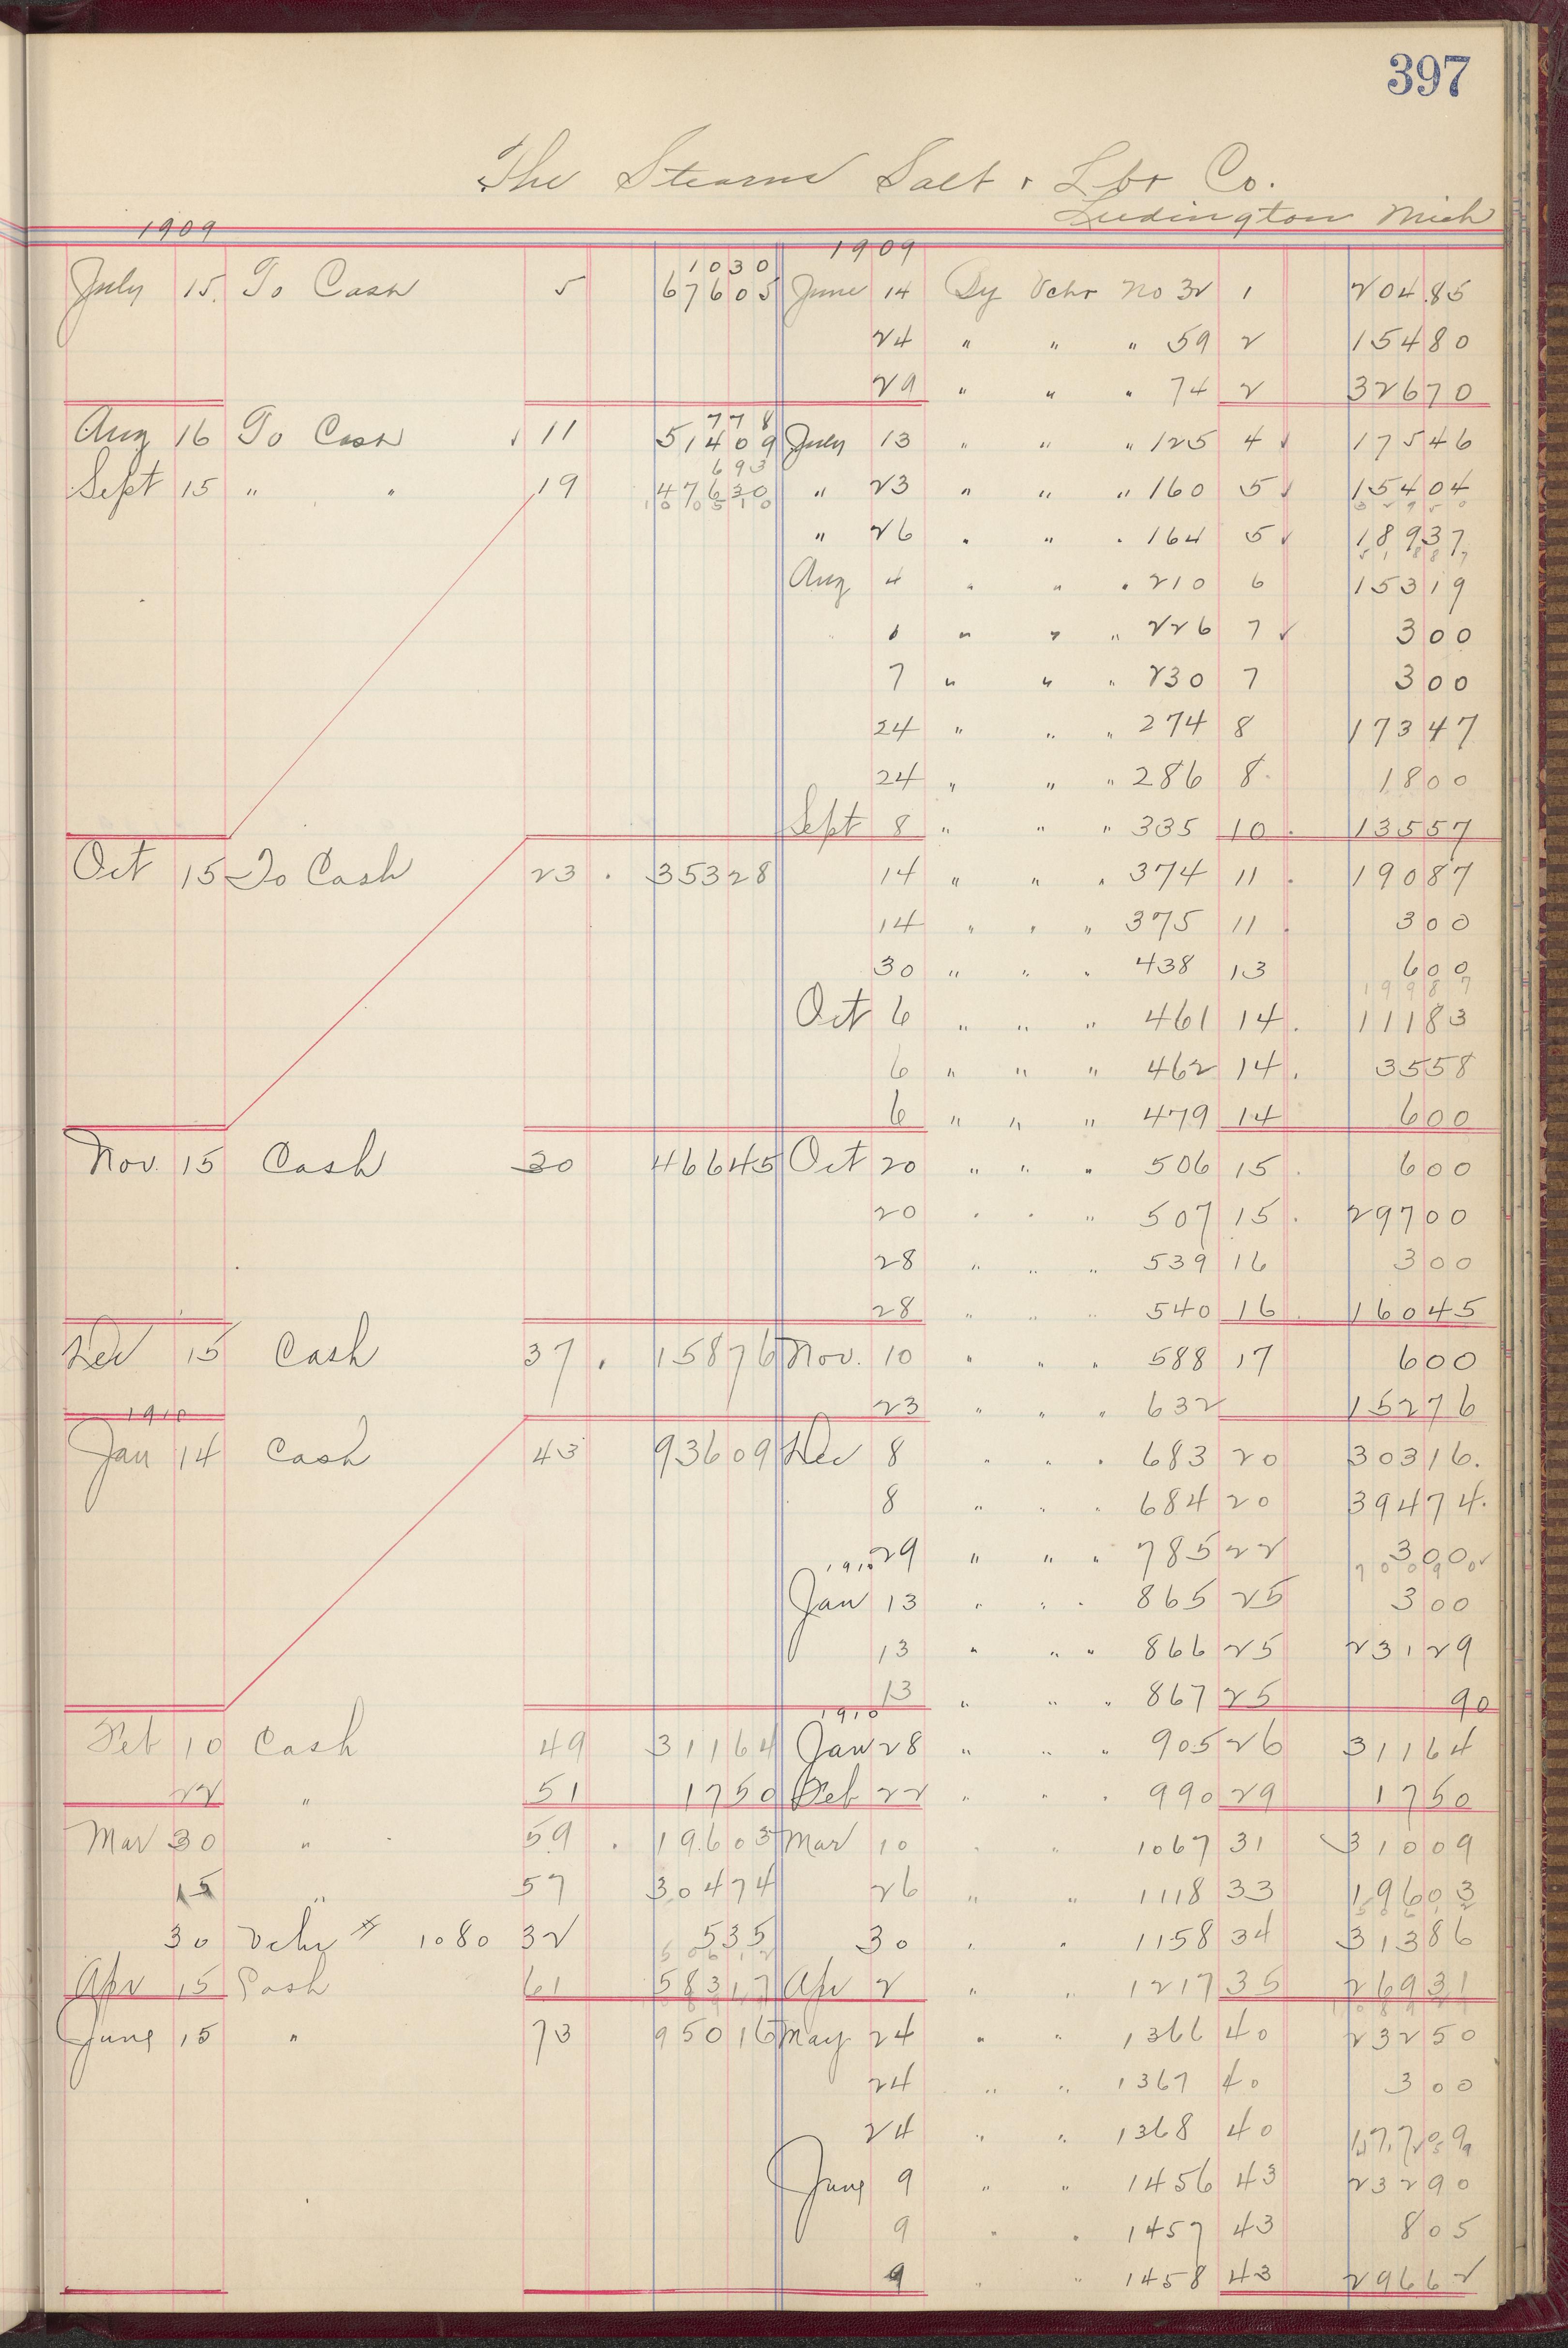 397
The Stearns Salt & Lbr Co.
Ludington Mich
1909 1909
1030
July 15. To Cash 5 67605 June 14 By Vchr No 32 1 204.85
24 " " " 59 2 15480
29 " " " 74 2 32670
778
Aug 16 To Cash √ 11 51409 July 13 " " " 125 4 √ 17546
693
Sept 15 " " 19 47630 " 23 " " " 160 5 √ 15404
100510 32950
" 26 " " " 164 5 √ 18937
51887
Aug 4 " " " 210 6 15319
" " " 226 7 √ 300
7 " " " 230 7 300
24 " " " 274 8 17347
24 " " " 286 8 1800
Sept 8 " " " 335 10 13557
Oct 15 To Cash 23 35328 14 " " " 374 11 19087
14 " " " 375 11 300
30 " " " 438 13 600
19987
Oct 6 " " " 461 14 11183
6 " " " 462 14 3558
6 " " " 479 14 600
Nov. 15 Cash 30 46645 Oct 20 " " " 506 15 600
20 " " " 507 15 29700
28 " " " 539 16 300
28 " " " 540 16 16045
Dec 15 Cash 37 15876 Nov. 10 " " " 588 17 600
1910 23 " " " 632 15276
Jan 14 Cash 43 93609 Dec 8 " " " 683 20 30316.
8 " " " 684 20 39474.
29 " " " 785 22 300 √
1910 70090
Jan 13 " " " 865 25 300
13 " " " 866 25 23129
13 " " " 867 25 90
1910
Feb 10 Cash 49 31164 Jan 28 " " " 905 26 31164
22 " 51 1750 Feb 22 " " " 990 29 1750
Mar 30 " 59 19603 Mar 10 " " 1067 31 √ 31009
15 " 57 30474 26 " " 1118 33 19603
50612
30 Vchr # 1080 32 535 30 " " 1158 34 31386
50612
Apr 15 Cash 61 58317 Apr 2 " " 1217 35 26931
June 15 " 73 95016 May 24 " " 1366 40 23250
24 " " 1367 40 300
24 " " 1368 40 17709
June 9 " " 1456 43 23290
9 " " 1457 43 805
9 " " 1458 43 29662